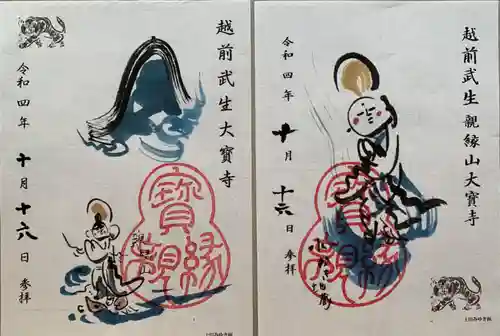 越前武生大寶寺
令和四年
十月
十六日
参拝
寶
親縁
越前武生親縁山大寶寺
令和四年
十月
十六日
参拝
寶
親縁